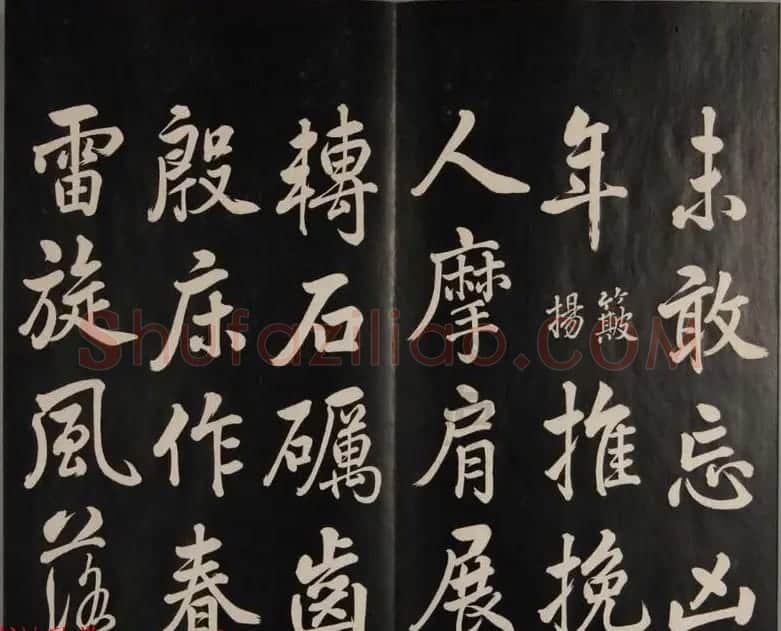 未敢忘凶
年簸揚推挽
人摩肩展
轉石礪齒
殷床作春
雷旋風落
Shufaziliao.COM